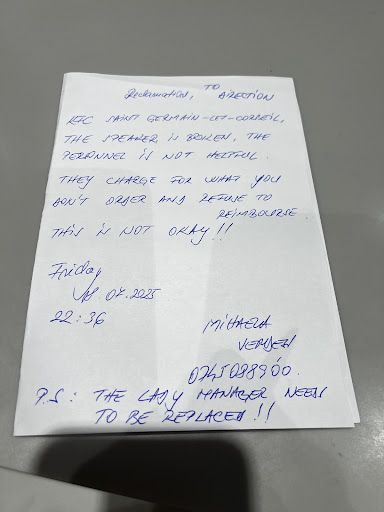 Reclamation, TO DIRECTION
KFC SAINT GERMAIN-LET-CORBEIL,
THE SPEAKER IS BROKEN, THE
PERSONNEL IS NOT HELTFUL.
THEY CHARGE FOR WHAT YOU
DON'T ORDER AND REFUSE TO
REIMBOURSE
THIS IS NOT OKAY!!
Friday
07.2025
22:36
MIHAELA
P.S: THE LADY MANAGER NEED
TO BE REPLACED!!